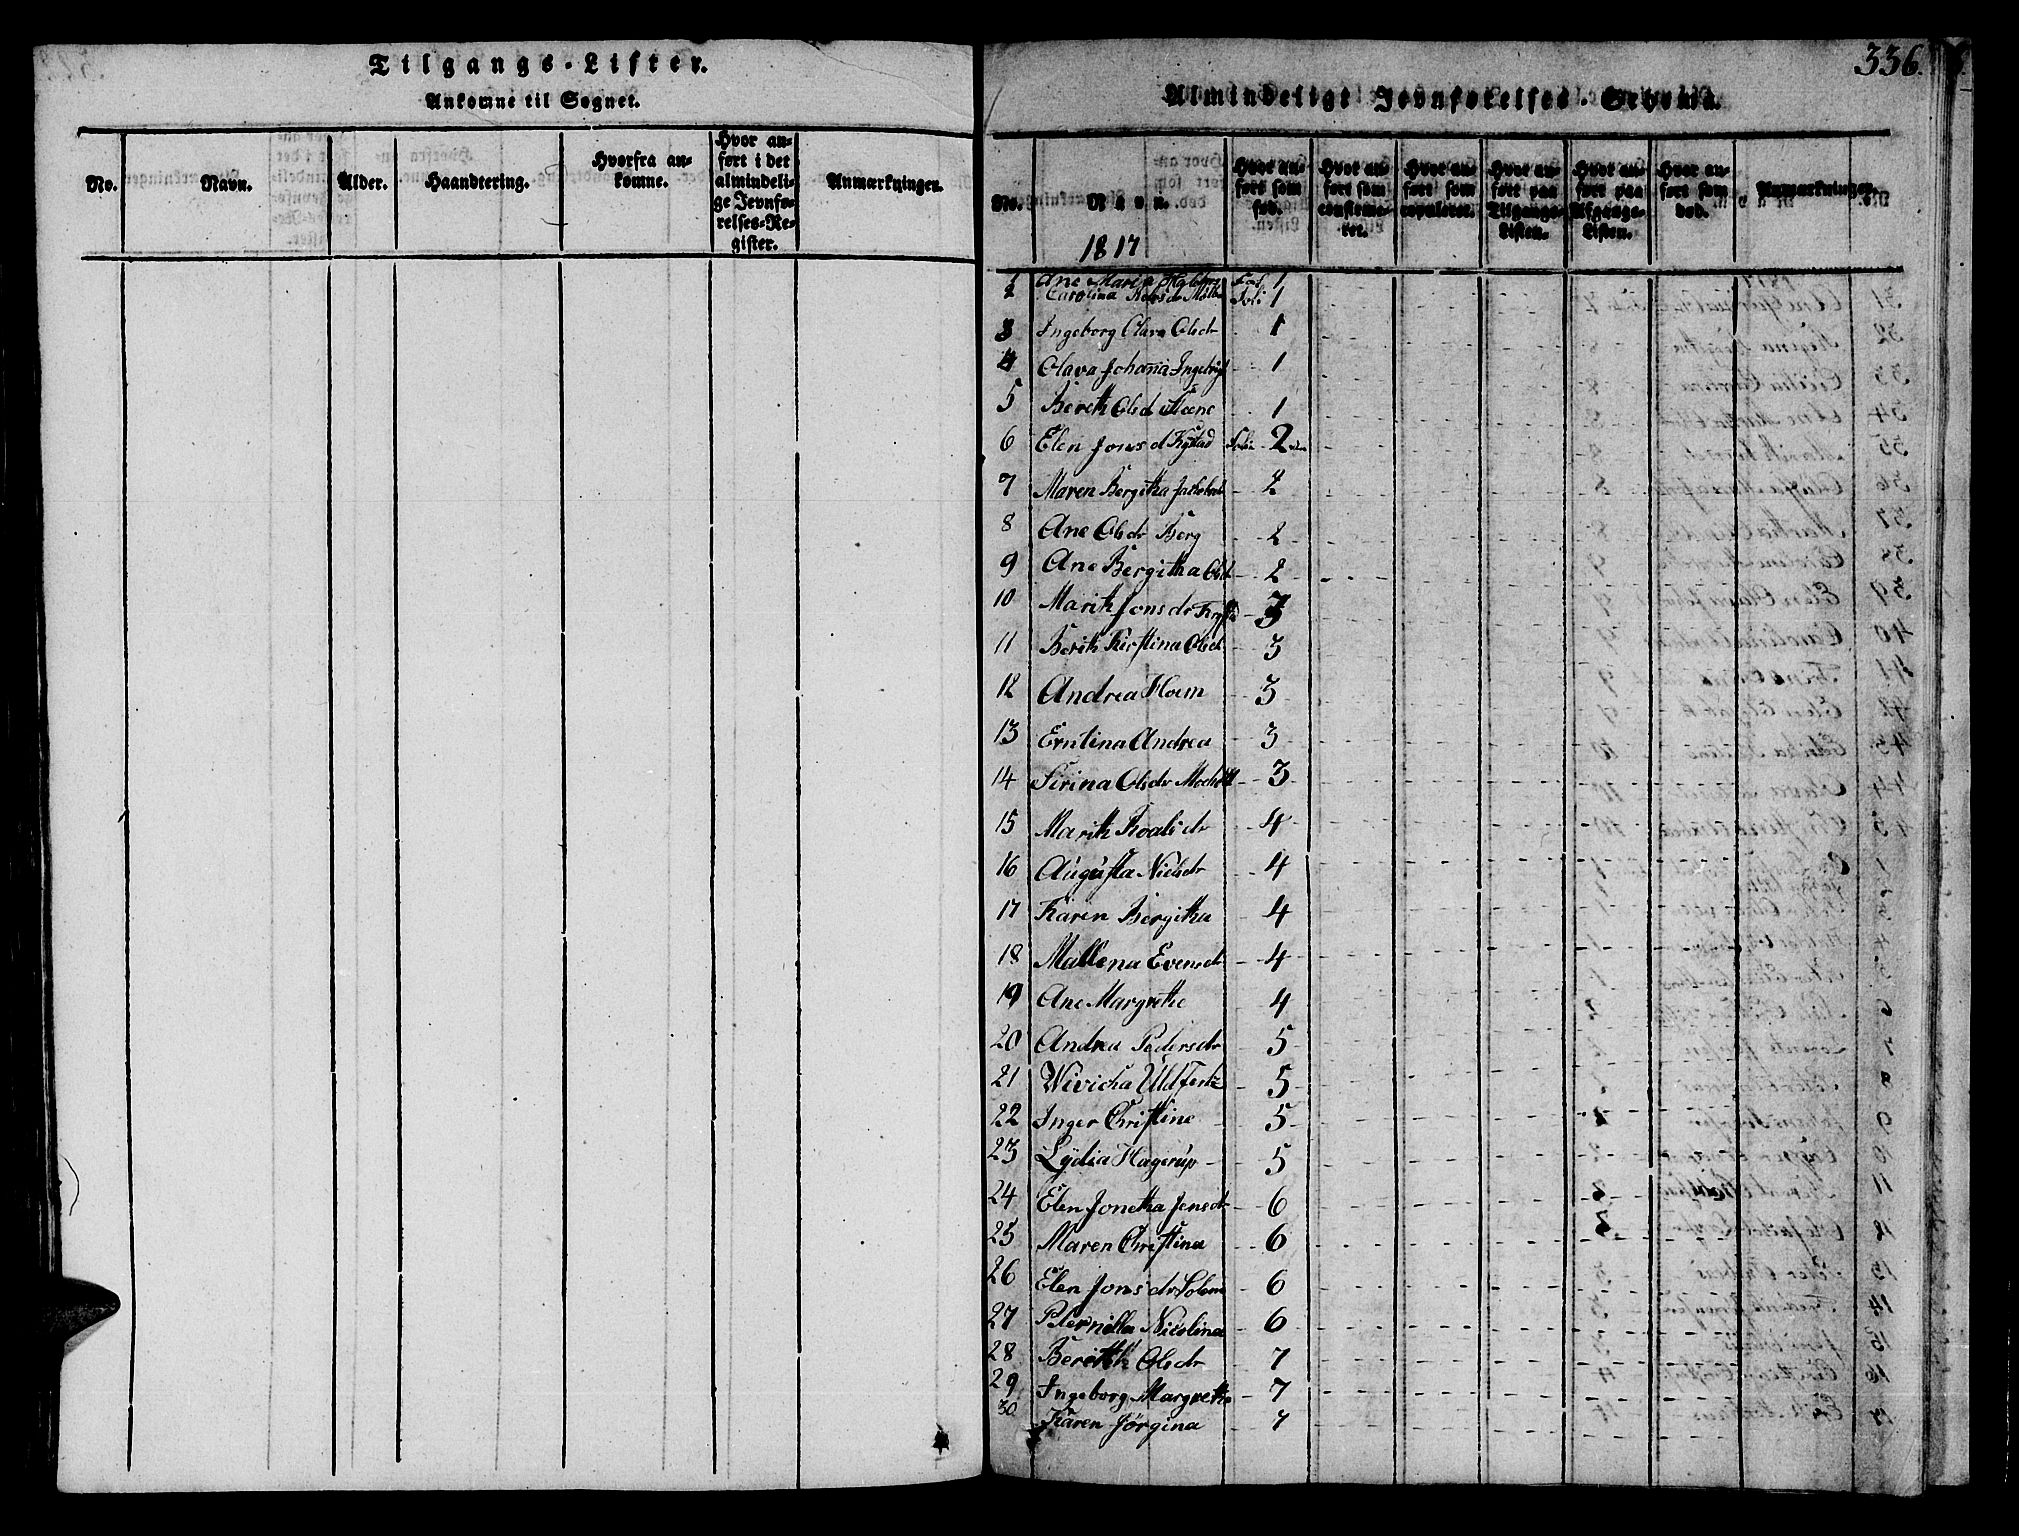 Tilgangs-Lister.
Ankomne til Sognet.
No.
Navn.
Alder.
Haandtering.
Hvorfra an-
komne.
Hvor an-
ført i det
almindeli-
ge Jevnfø-
relses-Re-
gister.
Anmærkninger.
336.
Almindeligt Jevnførelses-Schema.
No.
Navn.
1817
Hvor an-
ført som
fød.
Hvor an-
ført som
confirme-
ret.
Hvor an-
ført som
copuleret.
Hvor an-
ført paa
Tilgangs-
Listen.
Hvor an-
ført paa
Afgangs-
Listen.
Hvor an-
ført som
død.
Anmærkninger.
1 Ane Maria 1
2 Carolina Nelsdr 1
3 Ingeborg Clara Olsdr 1
4 Olava Johana 1
5 Bereth Olsd 1
6 Elen Jonsd 2
7 Maren Bergitha 2
8 Ane Olsdr Berg 2
9 Ane Bergitha Olsd 2
10 Marith Jonsdr 3
11 Berith Kirstina Olsd 3
12 Andrea Hoem 3
13 Erntina Andrea 3
14 Sirina Olsdr 3
15 Marith Roalsdr 4
16 Augusta Nielsdr 4
17 Karen Bergitha 4
18 Mallena Evensdr 4
19 Ane Margrethe 4
20 Andrea Pedersdr 5
21 Wivicha 5
22 Inger Christine 5
23 Lydia Hagerup 5
24 Elen Jonetha Jensdr 6
25 Maren Christina 6
26 Elen Jonsdr Solem 6
27 Peternella Nicolina 6
28 Bereth Olsdr 7
29 Ingeborg Margrethe 7
30 Karen Jørgina 7